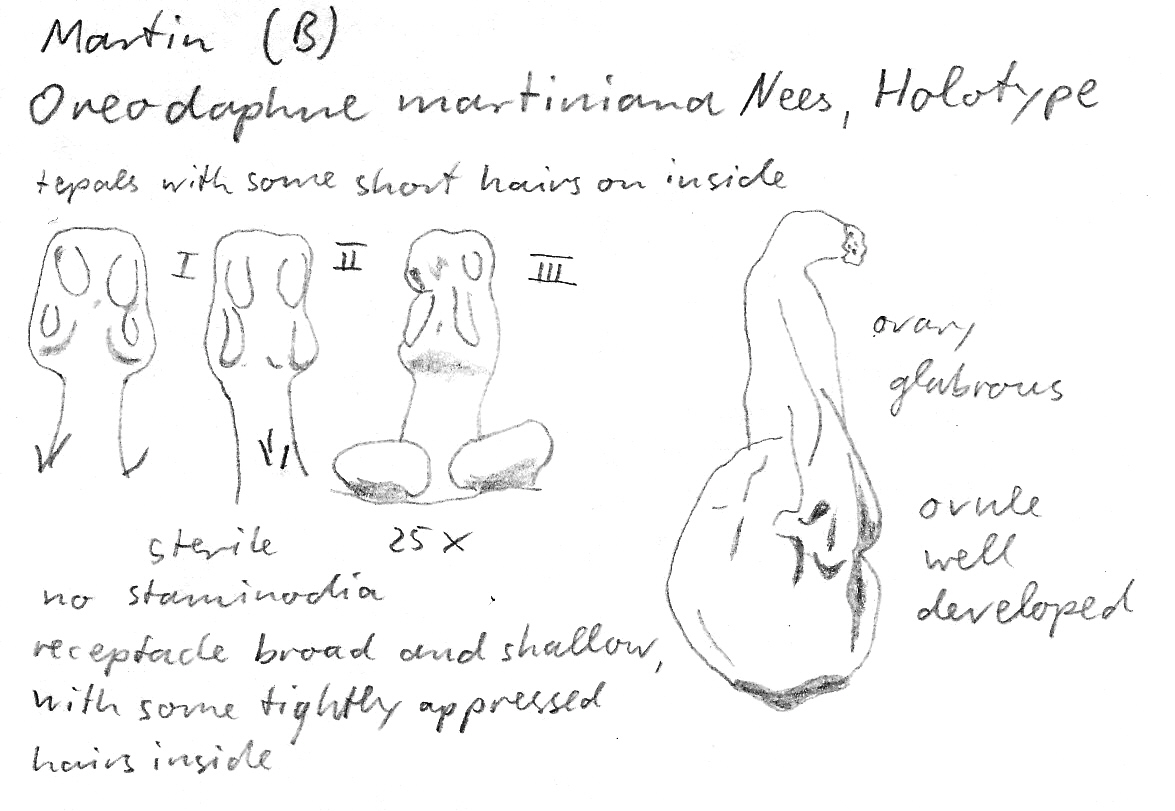 Martin (B)
Oreodaphne martiniana Nees, Holotype
tepals with some short hairs on inside
I II III
ovary
glabrous
ovule
well
developed
sterile 25 x
no staminodia
receptacle broad and shallow,
with some tightly appressed
hairs inside